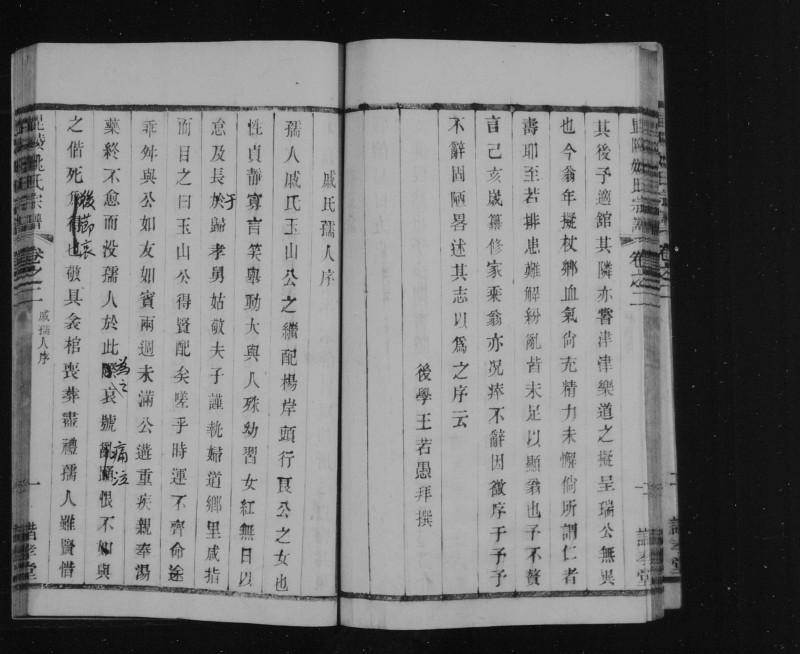 其後予適館其隣亦嘗津津樂道之擬呈瑞公無異
也今翁年擬杖鄉血氣尚充精力未懈倘所謂仁者
壽耶至若排患難解紛亂皆未足以顯翁也予不贅
言己亥歲纂修家乘翁亦況瘁不辭因徵序于予予
不辭固陋畧述其志以爲之序云
後學王若愚拜撰
戚氏孺人序
孺人戚氏玉山公之繼配楊岸頭行良公之女也
性貞靜寡言笑舉動大與人殊幼習女紅無日以
怠及長於歸孝舅姑敬夫子謹執婦道鄉里咸指
于
而目之曰玉山公得賢配矣嗟乎時運不齊命途
乖舛與公如友如賓兩週未滿公遊重疾親奉湯
藥終不愈而沒孺人於此哀號恨不如與
為之
痛泣
之偕死也敬具衾棺喪葬盡禮孺人雖賢惜
後節哀
毘陵姚氏宗譜
卷之二
戚孺人序
一